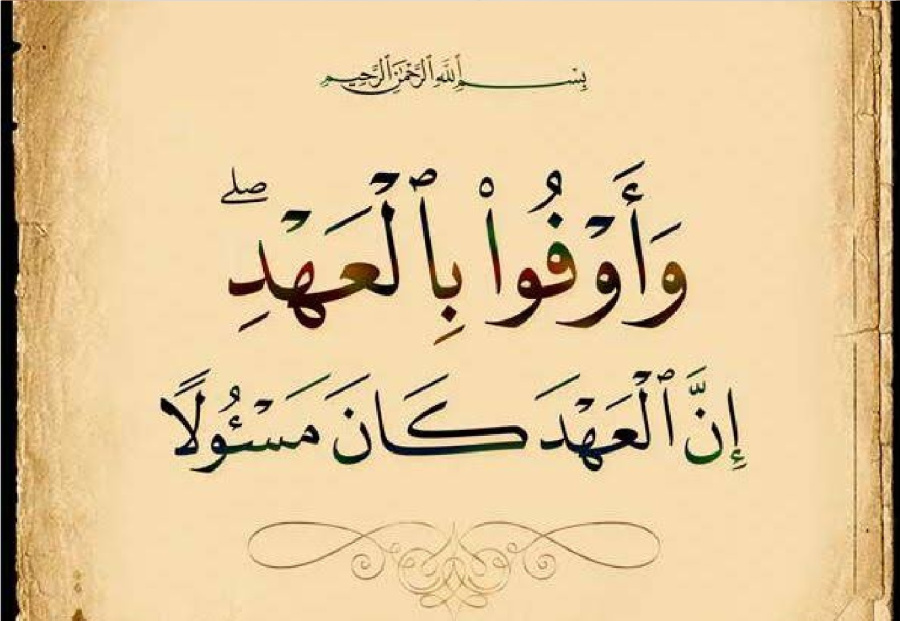 بِسْمِ ٱللَّهِ ٱلرَّحْمَٰنِ ٱلرَّحِيمِ
وَأَوْفُوا۟ بِٱلْعَهْدِ ۖ
إِنَّ ٱلْعَهْدَ كَانَ مَسْـُٔولًا